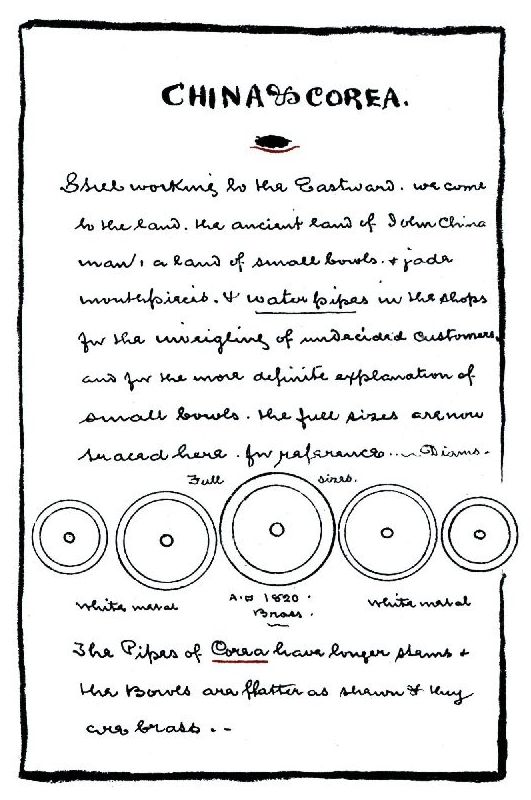 CHINA & COREA.
Still working to the Eastward. we come
to the land. the ancient land of John China
man, a land of small bowls. & jade
mouthpieces. & water pipes in the shops
for the inveigling of undecided customers,
and for the more definite explanation of
small bowls. the full sizes are now
traced here. for reference... Diams.
Full sizes.
White metal
A.D 1820.
Brass.
White metal
The Pipes of Corea have longer stems &
the Bowls are flatter as shewn & they
are brass. --